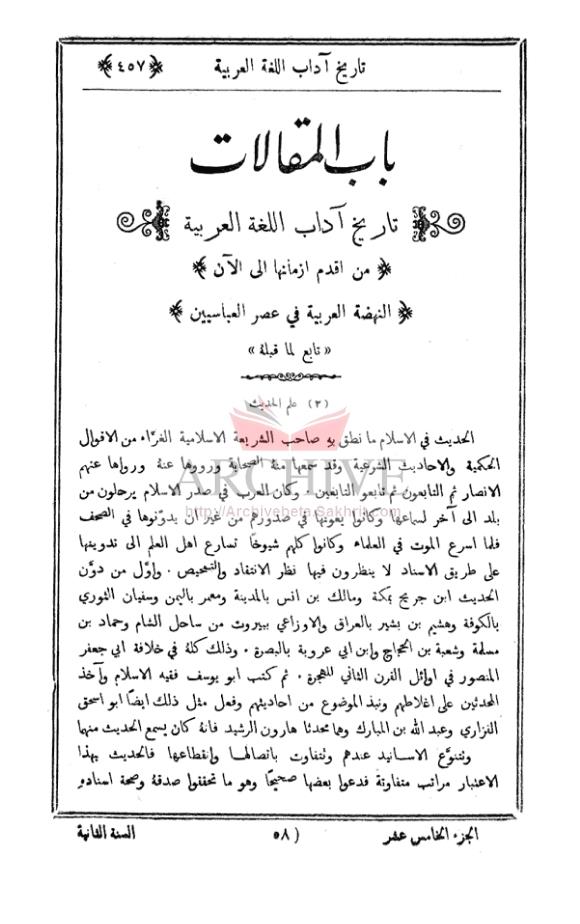 تاريخ آداب اللغة العربية ﴿٤٥٧﴾
باب المقالات
تاريخ آداب اللغة العربية
﴿ من اقدم ازمانها الى الآن ﴾
﴿ النهضة العربية في عصر العباسيين ﴾
« تابع لما قبلهُ »
(٢) علم الحديث
الحديث في الاسلام ما نطق بهِ صاحب الشريعة الاسلامية الغرَّاء من الاقوال
الحكمية والاحاديث الشرعية وقد سمعها منهُ الصحابة ورووها عنهُ ورواها عنهم
الانصار ثم التابعون ثم تابعو التابعين . وكان العرب في صدر الاسلام يرحلون من
بلد الى آخر لسماعها وكانوا يعونها في صدورهم من غير ان يدوّنوها في الصحف
فلما اسرع الموت في العلماء وكانوا كلهم شيوخًا تسارع اهل العلم الى تدوينها
على طريق الاسناد لا ينظرون فيها نظر الانتقاد والتمحيص . واوّل من دوَّن
الحديث ابن جريج بمكة ومالك بن انس بالمدينة ومعمر باليمن وسفيان الثوري
بالكوفة وهشيم بن بشير بالعراق والاوزاعي ببيروت من ساحل الشام وحماد بن
سلمة وشعبة بن الحجاج وابن ابي عروبة بالبصرة . وذلك كلهُ في خلافة ابي جعفر
المنصور في اوائل القرن الثاني للهجرة . ثم كتب ابو يوسف فقيه الاسلام وآخذ
المحدثين على اغلاطهم ونبذ الموضوع من احاديثهم وفعل مثل ذلك ايضًا ابو اسحق
الفزاري وعبد الله بن المبارك وهما محدثا هارون الرشيد فانهُ كان يسمع الحديث منهما
وتتنوَّع الاسانيد عندهم وتتفاوت باتصالها وانقطاعها فالحديث بهذا
الاعتبار مراتب متفاوتة فدعوا بعضها صحيحًا وهو ما تحققوا صدقهُ وصحة اسنادهِ
الجزء الخامس عشر (٥٨ السنة الثانية
ARCHIVE
http://Archivebeta.Sakhrit.com